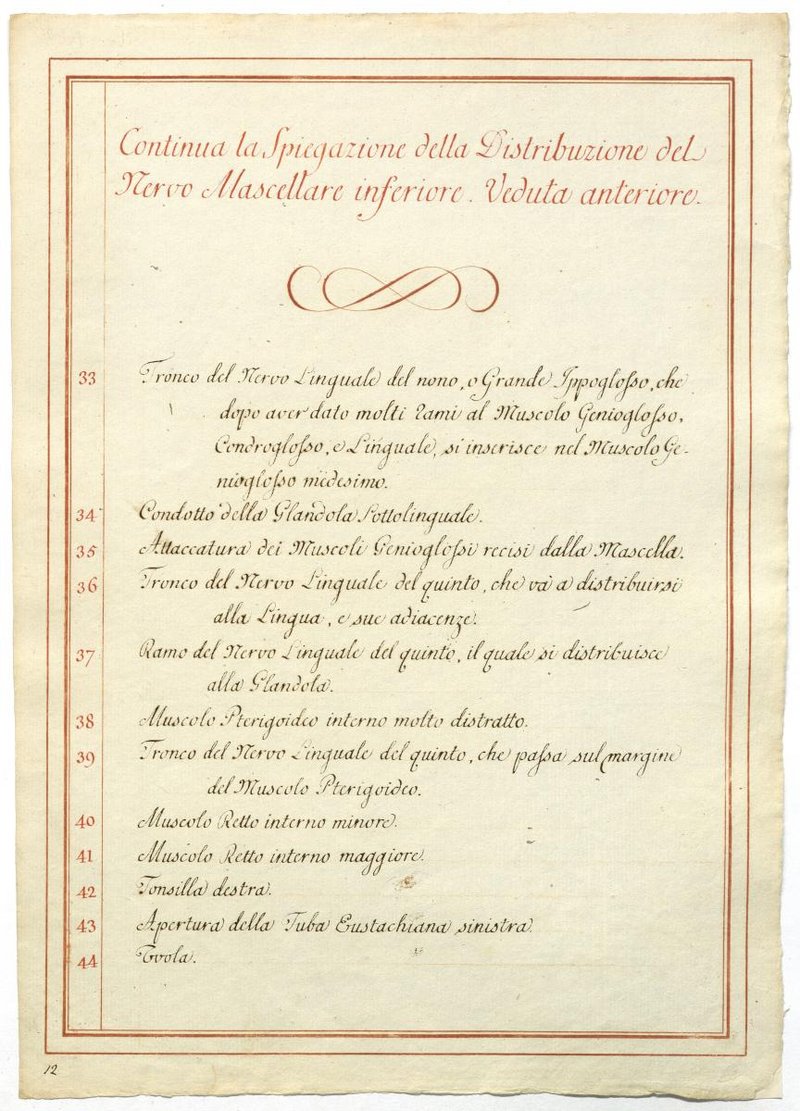 Continua la Spiegazione della Distribuzione del
Nervo Mascellare inferiore. Veduta anteriore.
33 Tronco del Nervo Linguale del nono, o Grande Ippoglosso, che
dopo aver dato molti rami al Muscolo Genioglosso,
Condroglosso, e Linguale, si inserisce nel Muscolo Ge-
nioglosso medesimo.
34 Condotto della Glandola Sottolinguale.
35 Attaccatura dei Muscoli Genioglossi recisi dalla Mascella.
36 Tronco del Nervo Linguale del quinto, che và a distribuirsi
alla Lingua, e sue adiacenze.
37 Ramo del Nervo Linguale del quinto, il quale si distribuisce
alla Glandola.
38 Muscolo Pterigoideo interno molto distratto.
39 Tronco del Nervo Linguale del quinto, che passa sul margine
del Muscolo Pterigoideo.
40 Muscolo Retto interno minore.
41 Muscolo Retto interno maggiore.
42 Tonsilla destra.
43 Apertura della Tuba Eustachiana sinistra.
44 Uvola.
12